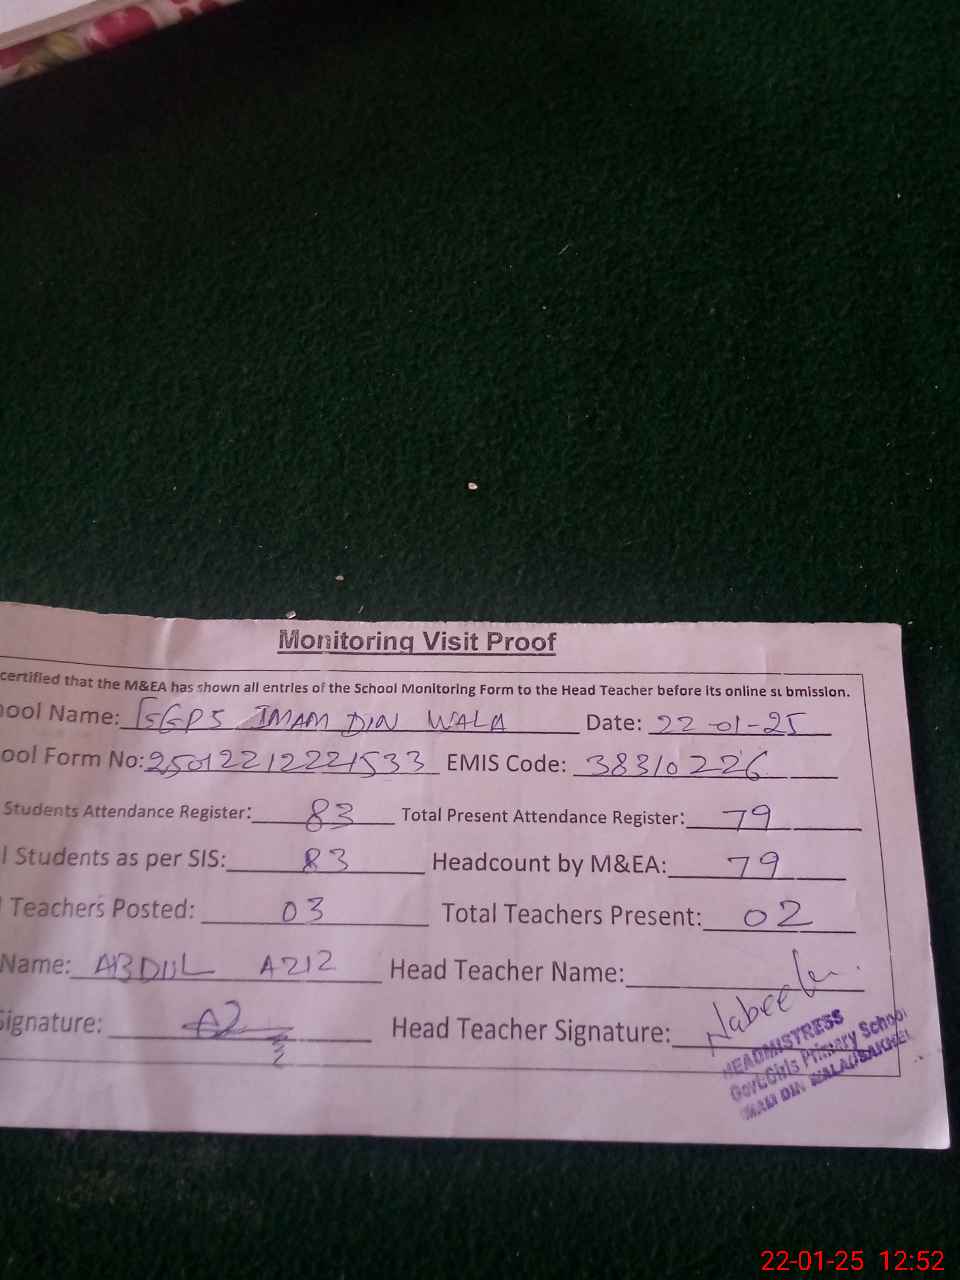 Monitoring Visit Proof
certified that the M&EA has shown all entries of the School Monitoring Form to the Head Teacher before its online submission.
ool Name: GGPS IMAM DIN WALA Date: 22-01-25
ool Form No: 25012212221533 EMIS Code: 38310226
Students Attendance Register: 83 Total Present Attendance Register: 79
l Students as per SIS: 83 Headcount by M&EA: 79
Teachers Posted: 03 Total Teachers Present: 02
Name: ABDUL AZIZ Head Teacher Name:
Signature: Head Teacher Signature: Nabeela
HEADMISTRESS
Govt.Girls Primary School
IMAM DIN WALA
22-01-25 12:52